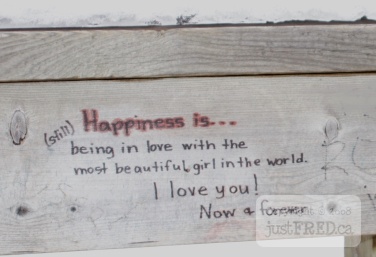 Happiness is...
(still) being in love with the
most beautiful girl in the world.
I love you!
Now & forever
justFRED.ca